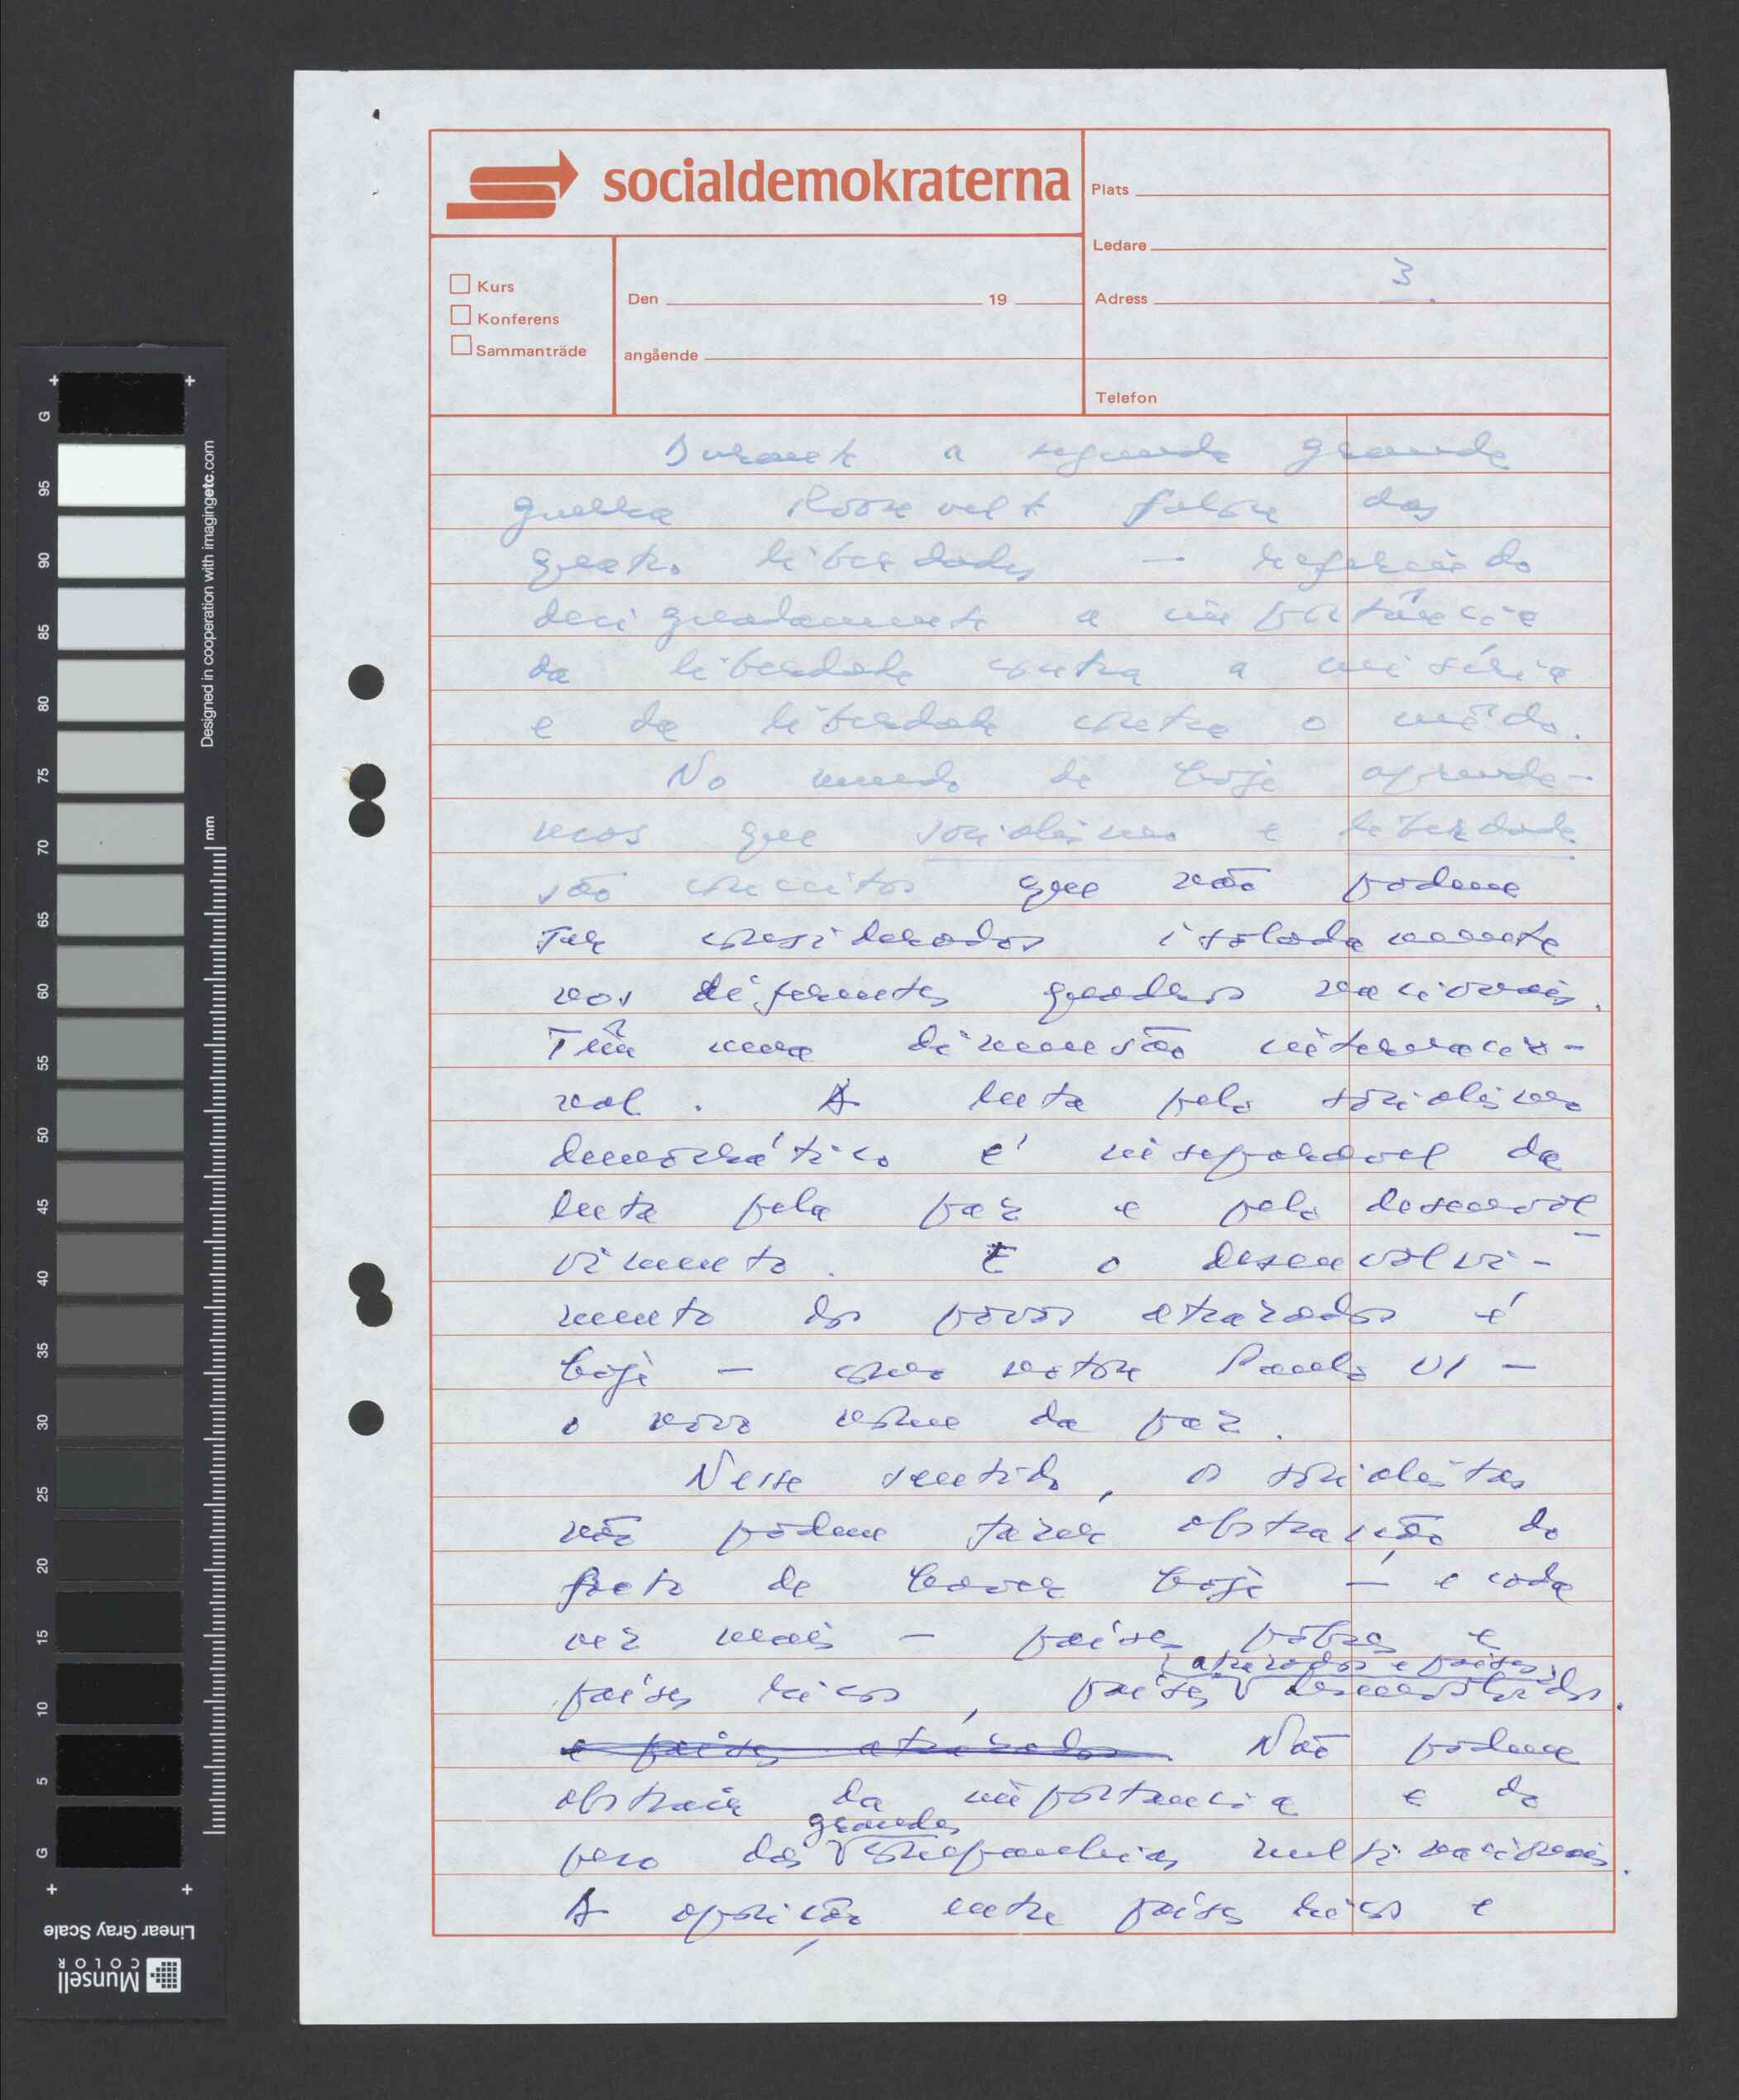 socialdemokraterna
Plats
Ledare
Kurs
Konferens
Sammanträde
Den 19
angående
Adress 3.
Telefon
Durante a segunda grande
guerra Roosevelt falou das
quatro liberdades — referindo
designadamente a importância
da liberdade contra a miséria
e da liberdade contra o mêdo.
No mundo de hoje aprende-
mos que socialismo e liberdade
são conceitos que não podem
ser considerados isoladamente
nos diferentes quadros nacionais.
Têm uma dimensão internacio-
nal. A luta pelo socialismo
democrático é inseparável da
luta pela paz e pelo desenvol-
vimento. E o desenvolvi-
mento dos povos atrazados é
hoje — como notou Paulo VI —
o novo nome da paz.
Nesse sentido, os socialistas
não podem fazer abstração do
facto de haver hoje — e cada
vez mais — países pobres e
atrazados e países
países ricos, países desenvolvidos.
e países atrazados. Não podem
abstrair da importancia e do
grandes
peso das companhias multinacionais.
A oposição entre países ricos e
G
95
90
85
80
75
70
65
60
55
50
45
40
35
30
25
20
15
10
5
G
Designed in cooperation with imagingetc.com
mm
Linear Gray Scale
Munsell
COLOR